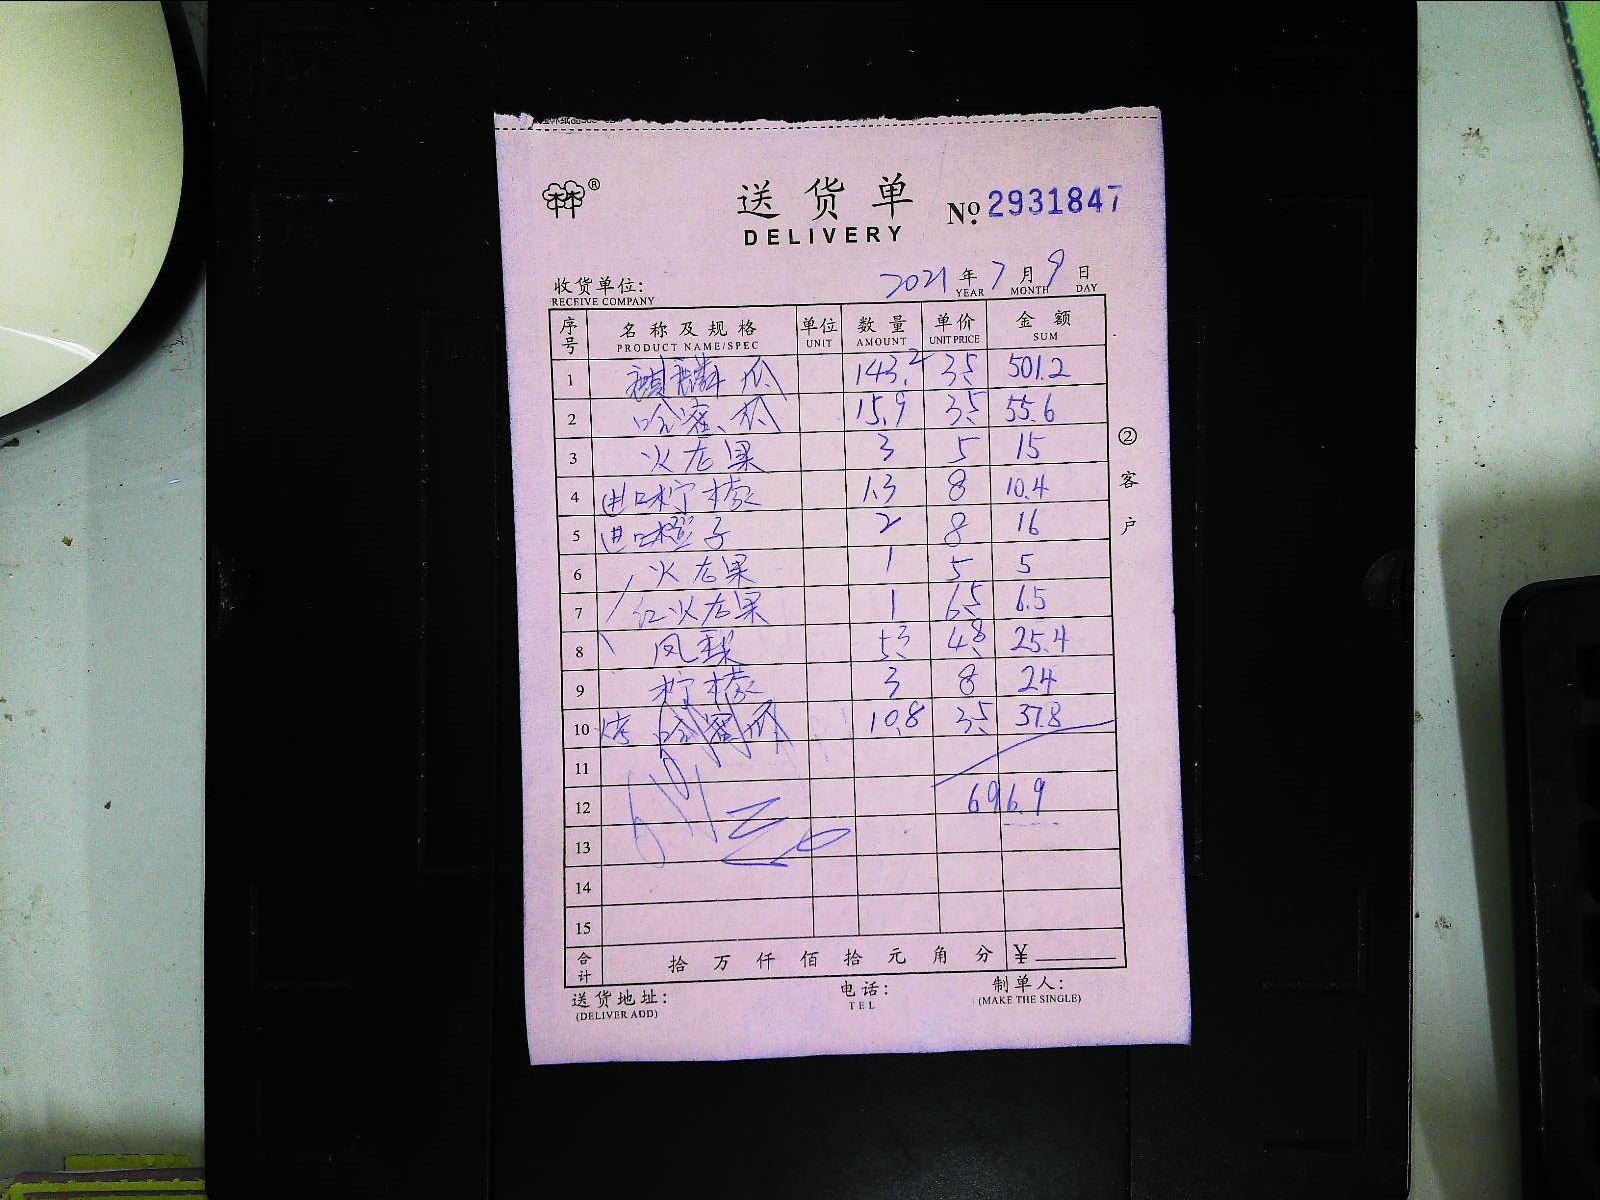 送货单
DELIVERY
No. 2931847
收货单位:
RECEIVE COMPANY
2021 年 7 月 9 日
YEAR MONTH DAY
序号 名称及规格 单位 数量 单价 金额
PRODUCT NAME/SPEC UNIT AMOUNT UNIT PRICE SUM
1 麒麟瓜 143.2 3.5 501.2
2 哈蜜瓜 15.9 3.5 55.6
3 火龙果 3 5 15
4 进口柠檬 1.3 8 10.4
5 进口橙子 2 8 16
6 火龙果 1 5 5
7 红火龙果 1 6.5 6.5
8 凤梨 5.3 4.8 25.4
9 柠檬 3 8 24
10 哈蜜瓜 10.8 3.5 37.8
11
12 696.9
13
14
15
合计 拾 万 仟 佰 拾 元 角 分 ¥
② 客户
送货地址: 电话: 制单人:
(DELIVER ADD) TEL (MAKE THE SINGLE)